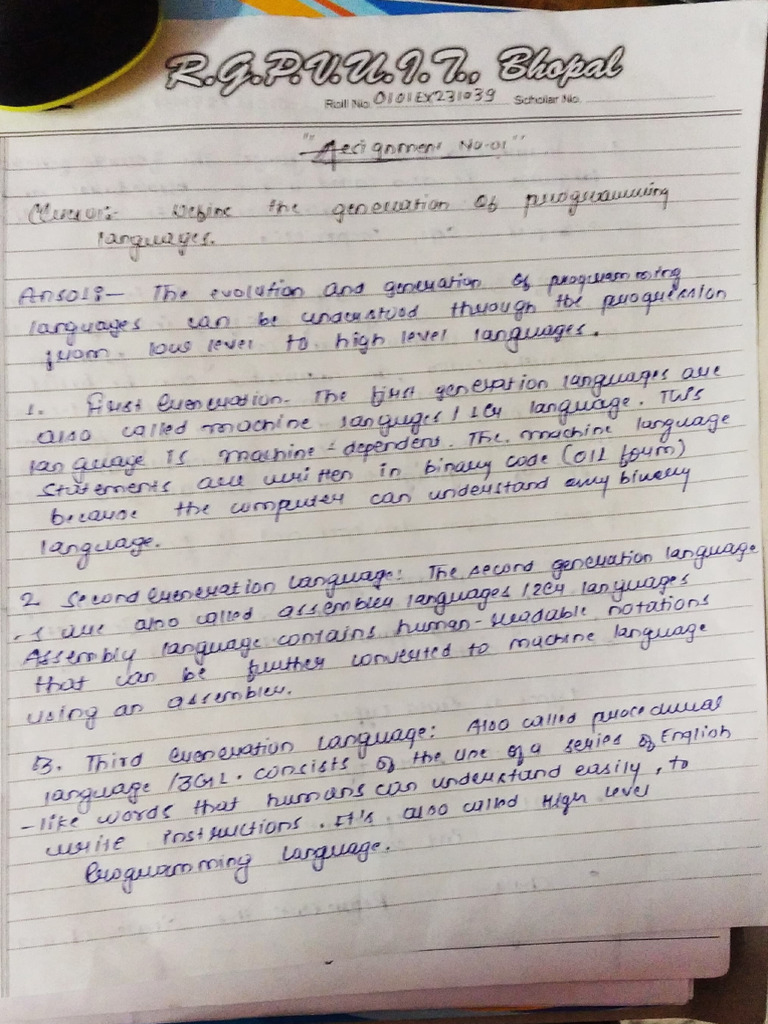 R.G.P.V.U.I.T., Bhopal
Roll No. 0101EX231039 Scholar No.
"Assignment No-01"
Ques01:- Define the generation of programming
languages.
Ans01:- The evolution and generation of programming
languages can be understood through the progression
from low level to high level languages.
1. First Generation- The first generation languages are
also called machine languages / 1G language. This
language is machine-dependent. The machine language
statements are written in binary code (0/1 form)
because the computer can understand only binary
language.
2. Second Generation Language: The second generation language
s are also called assembler languages / 2G languages
Assembly language contains human-readable notations
that can be further converted to machine language
using an assembler.
3. Third Generation Language: Also called procedural
language /3GL. consists of the use of a series of English
-like words that humans can understand easily, to
write instructions. It's also called High Level
Programming Language.